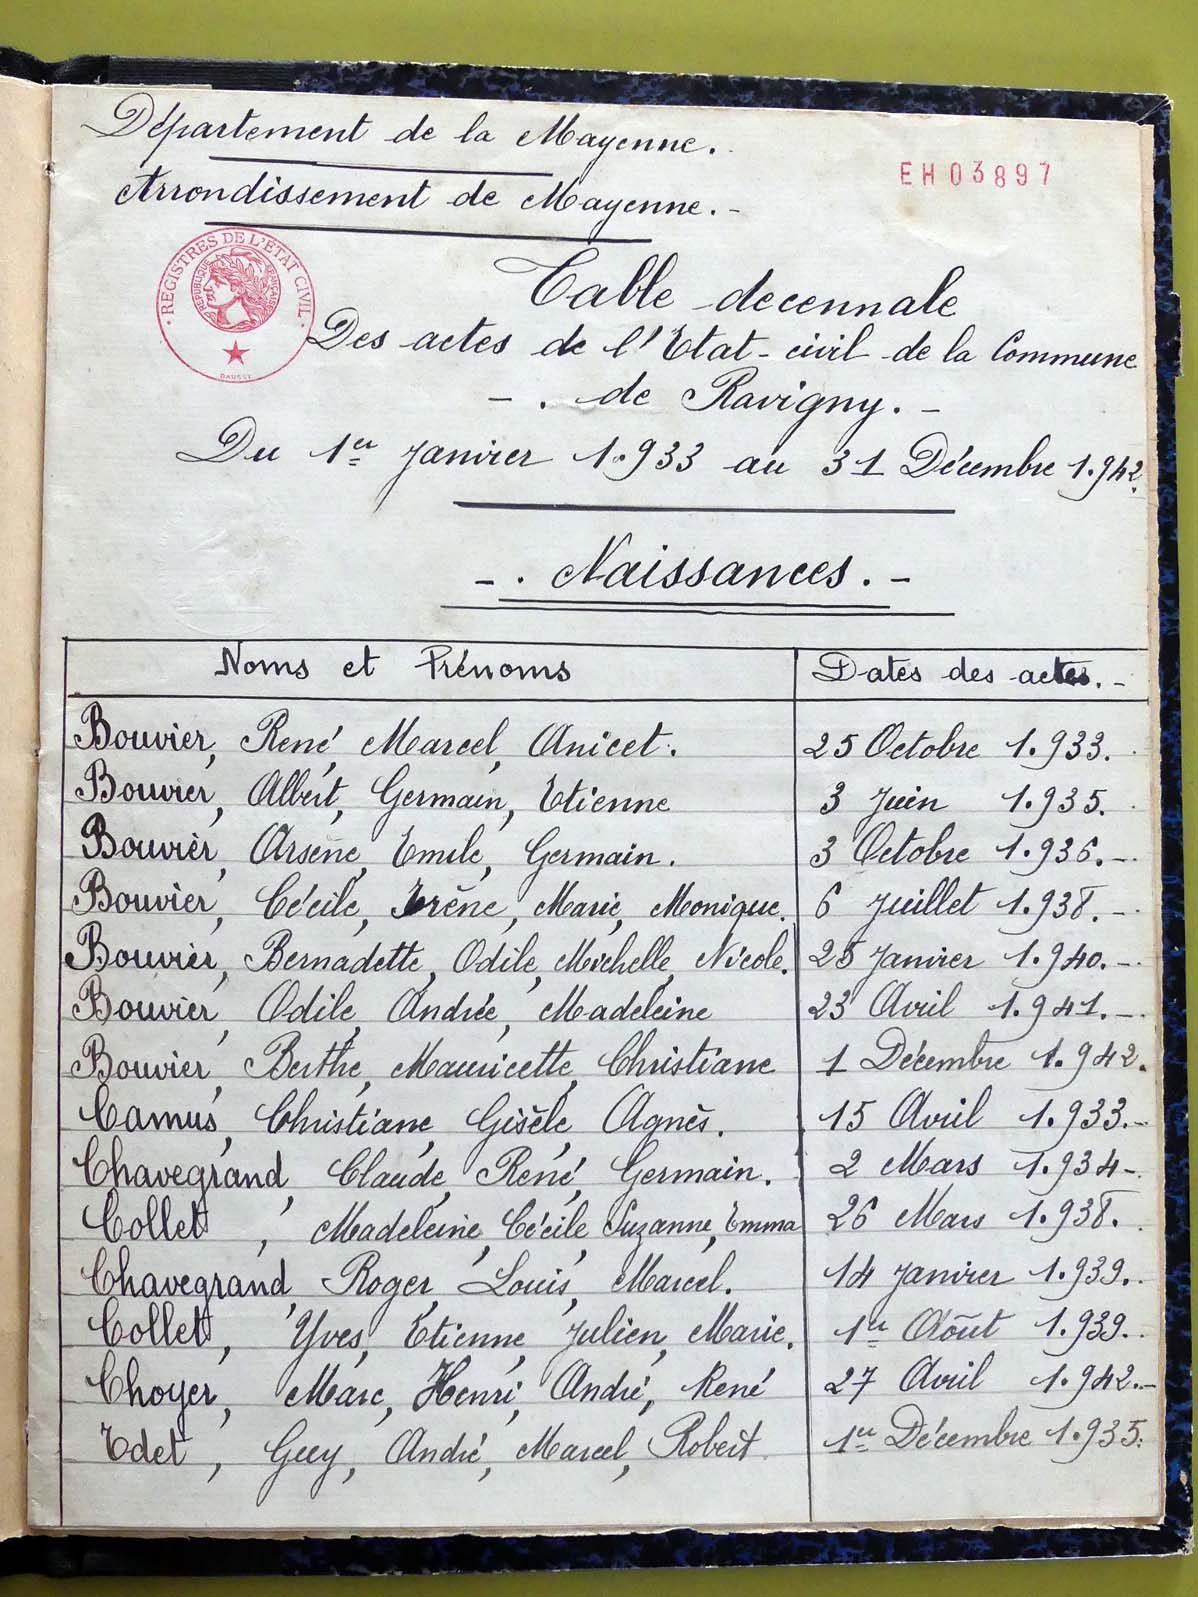 Département de la Mayenne.
EH03897
Arrondissement de Mayenne.-
REGISTRES DE L'ETAT CIVIL
REPUBLIQUE FRANÇAISE
Table decennale
Des actes de l'Etat-civil de la Commune
- . de Ravigny. -
Du 1er Janvier 1.933 au 31 Décembre 1.942.
- . Naissances. -
Noms et Prénoms Dates des actes.-
Bouvier, René, Marcel, Anicet. 25 Octobre 1.933.
Bouvier, Albert, Germain, Etienne 3 Juin 1.935.
Bouvier, Arsène, Emile, Germain. 3 Octobre 1.936.-
Bouvier, Cécile, Irène, Marie, Monique. 6 Juillet 1.938.-
Bouvier, Bernadette, Odile, Michelle, Nicole. 25 Janvier 1.940.-
Bouvier, Odile, Andrée, Madeleine 23 Avril 1.941.-
Bouvier, Berthe, Mauricette, Christiane 1 Décembre 1.942.
Camus, Christiane, Gisèle, Agnès. 15 Avril 1.933.-
Chavegrand, Claude, René, Germain. 2 Mars 1.934-
Collet, Madeleine, Cécile, Suzanne, Emma 26 Mars 1.938.
Chavegrand, Roger, Louis, Marcel. 14 Janvier 1.939.
Collet, Yves, Etienne, Julien, Marie. 1er Août 1.939.
Choyer, Marc, Henri, André, René 27 Avril 1.942.-
Edet, Guy, André, Marcel, Robert 1er Décembre 1.935.